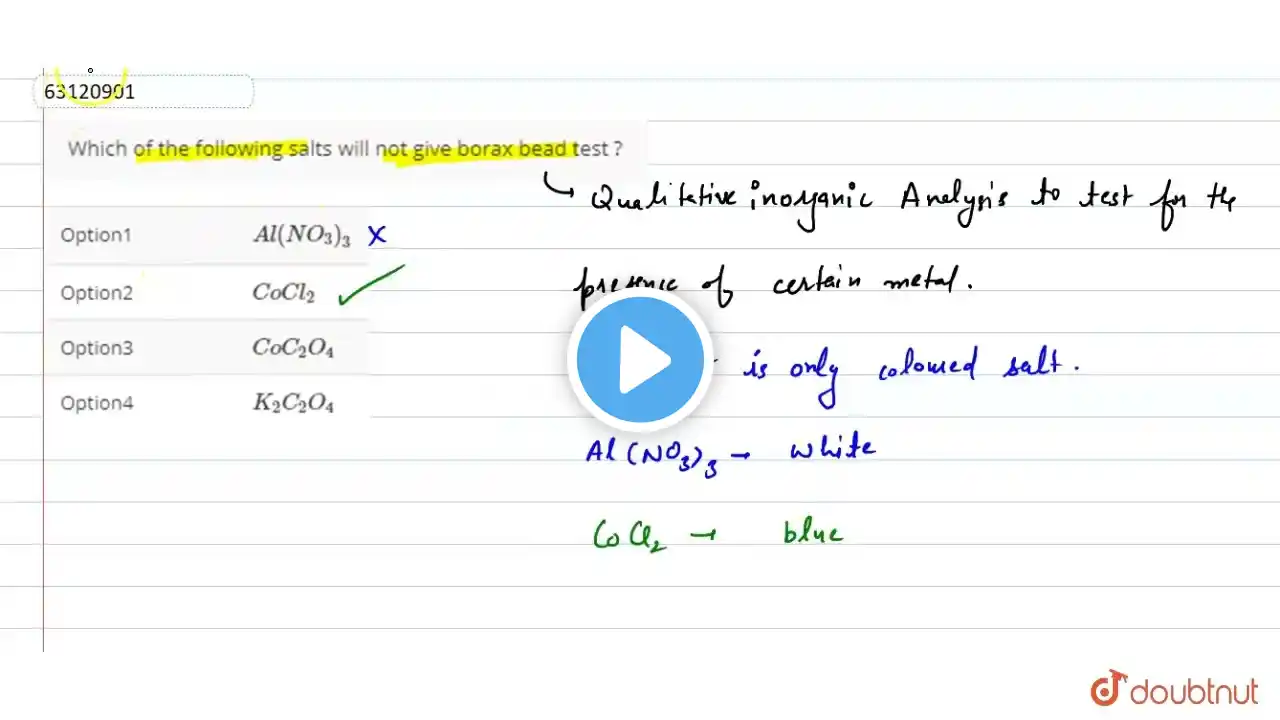 63120901
Which of the following salts will not give borax bead test ?
Qualitative inorganic Analysis to test for the
Option1 Al(NO₃)₃ X
presence of certain metal.
Option2 CoCl₂ ✓
Option3 CoC₂O₄
is only coloured salt.
Option4 K₂C₂O₄
Al(NO₃)₃ → white
CoCl₂ → blue
doubtnut